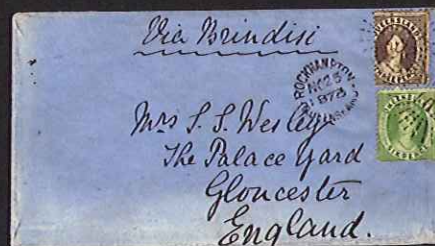 Via Brindisi
QUEENSLAND
ROCKHAMPTON
1873
QUEENSLAND
Mrs S. S. Wesley
The Palace Yard
Gloucester
England.